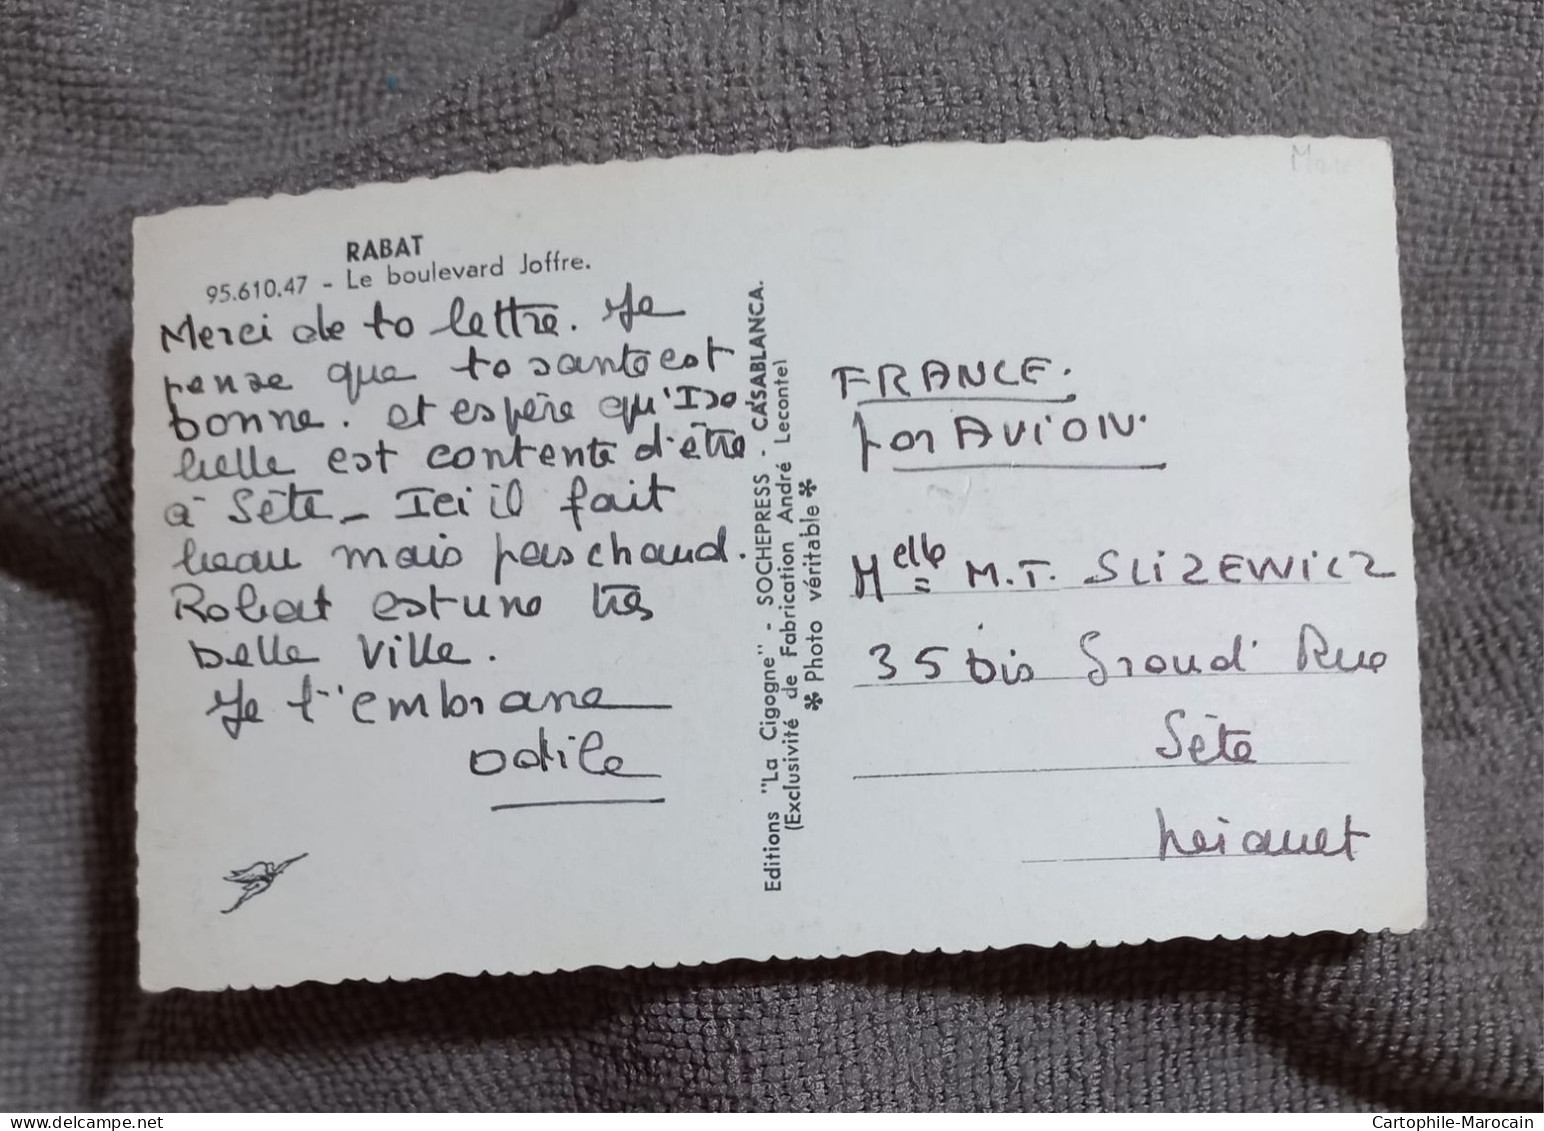 RABAT
95.610.47 - Le boulevard Joffre.
Merci de ta lettre. Je
pense que ta santé est
bonne. et espère qu'Isa
belle est contente d'être
à Sète - Ici il fait
beau mais pas chaud.
Rabat est une très
belle ville.
Je t'embrasse
Odile
Editions "La Cigogne" - SOCHEPRESS - CASABLANCA.
(Exclusivité de Fabrication André Lecontel
* Photo véritable *
FRANCE.
par AVION.
Melle M.T. SLIZEWICZ
35 bis Grand' Rue
Sète
Hérault
Cartophile-Marocain